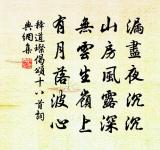 漏盡夜沉沉
山房風露深
無雲生嶺上
有月落波心
釋道璨偈頌十八首詞
典網集